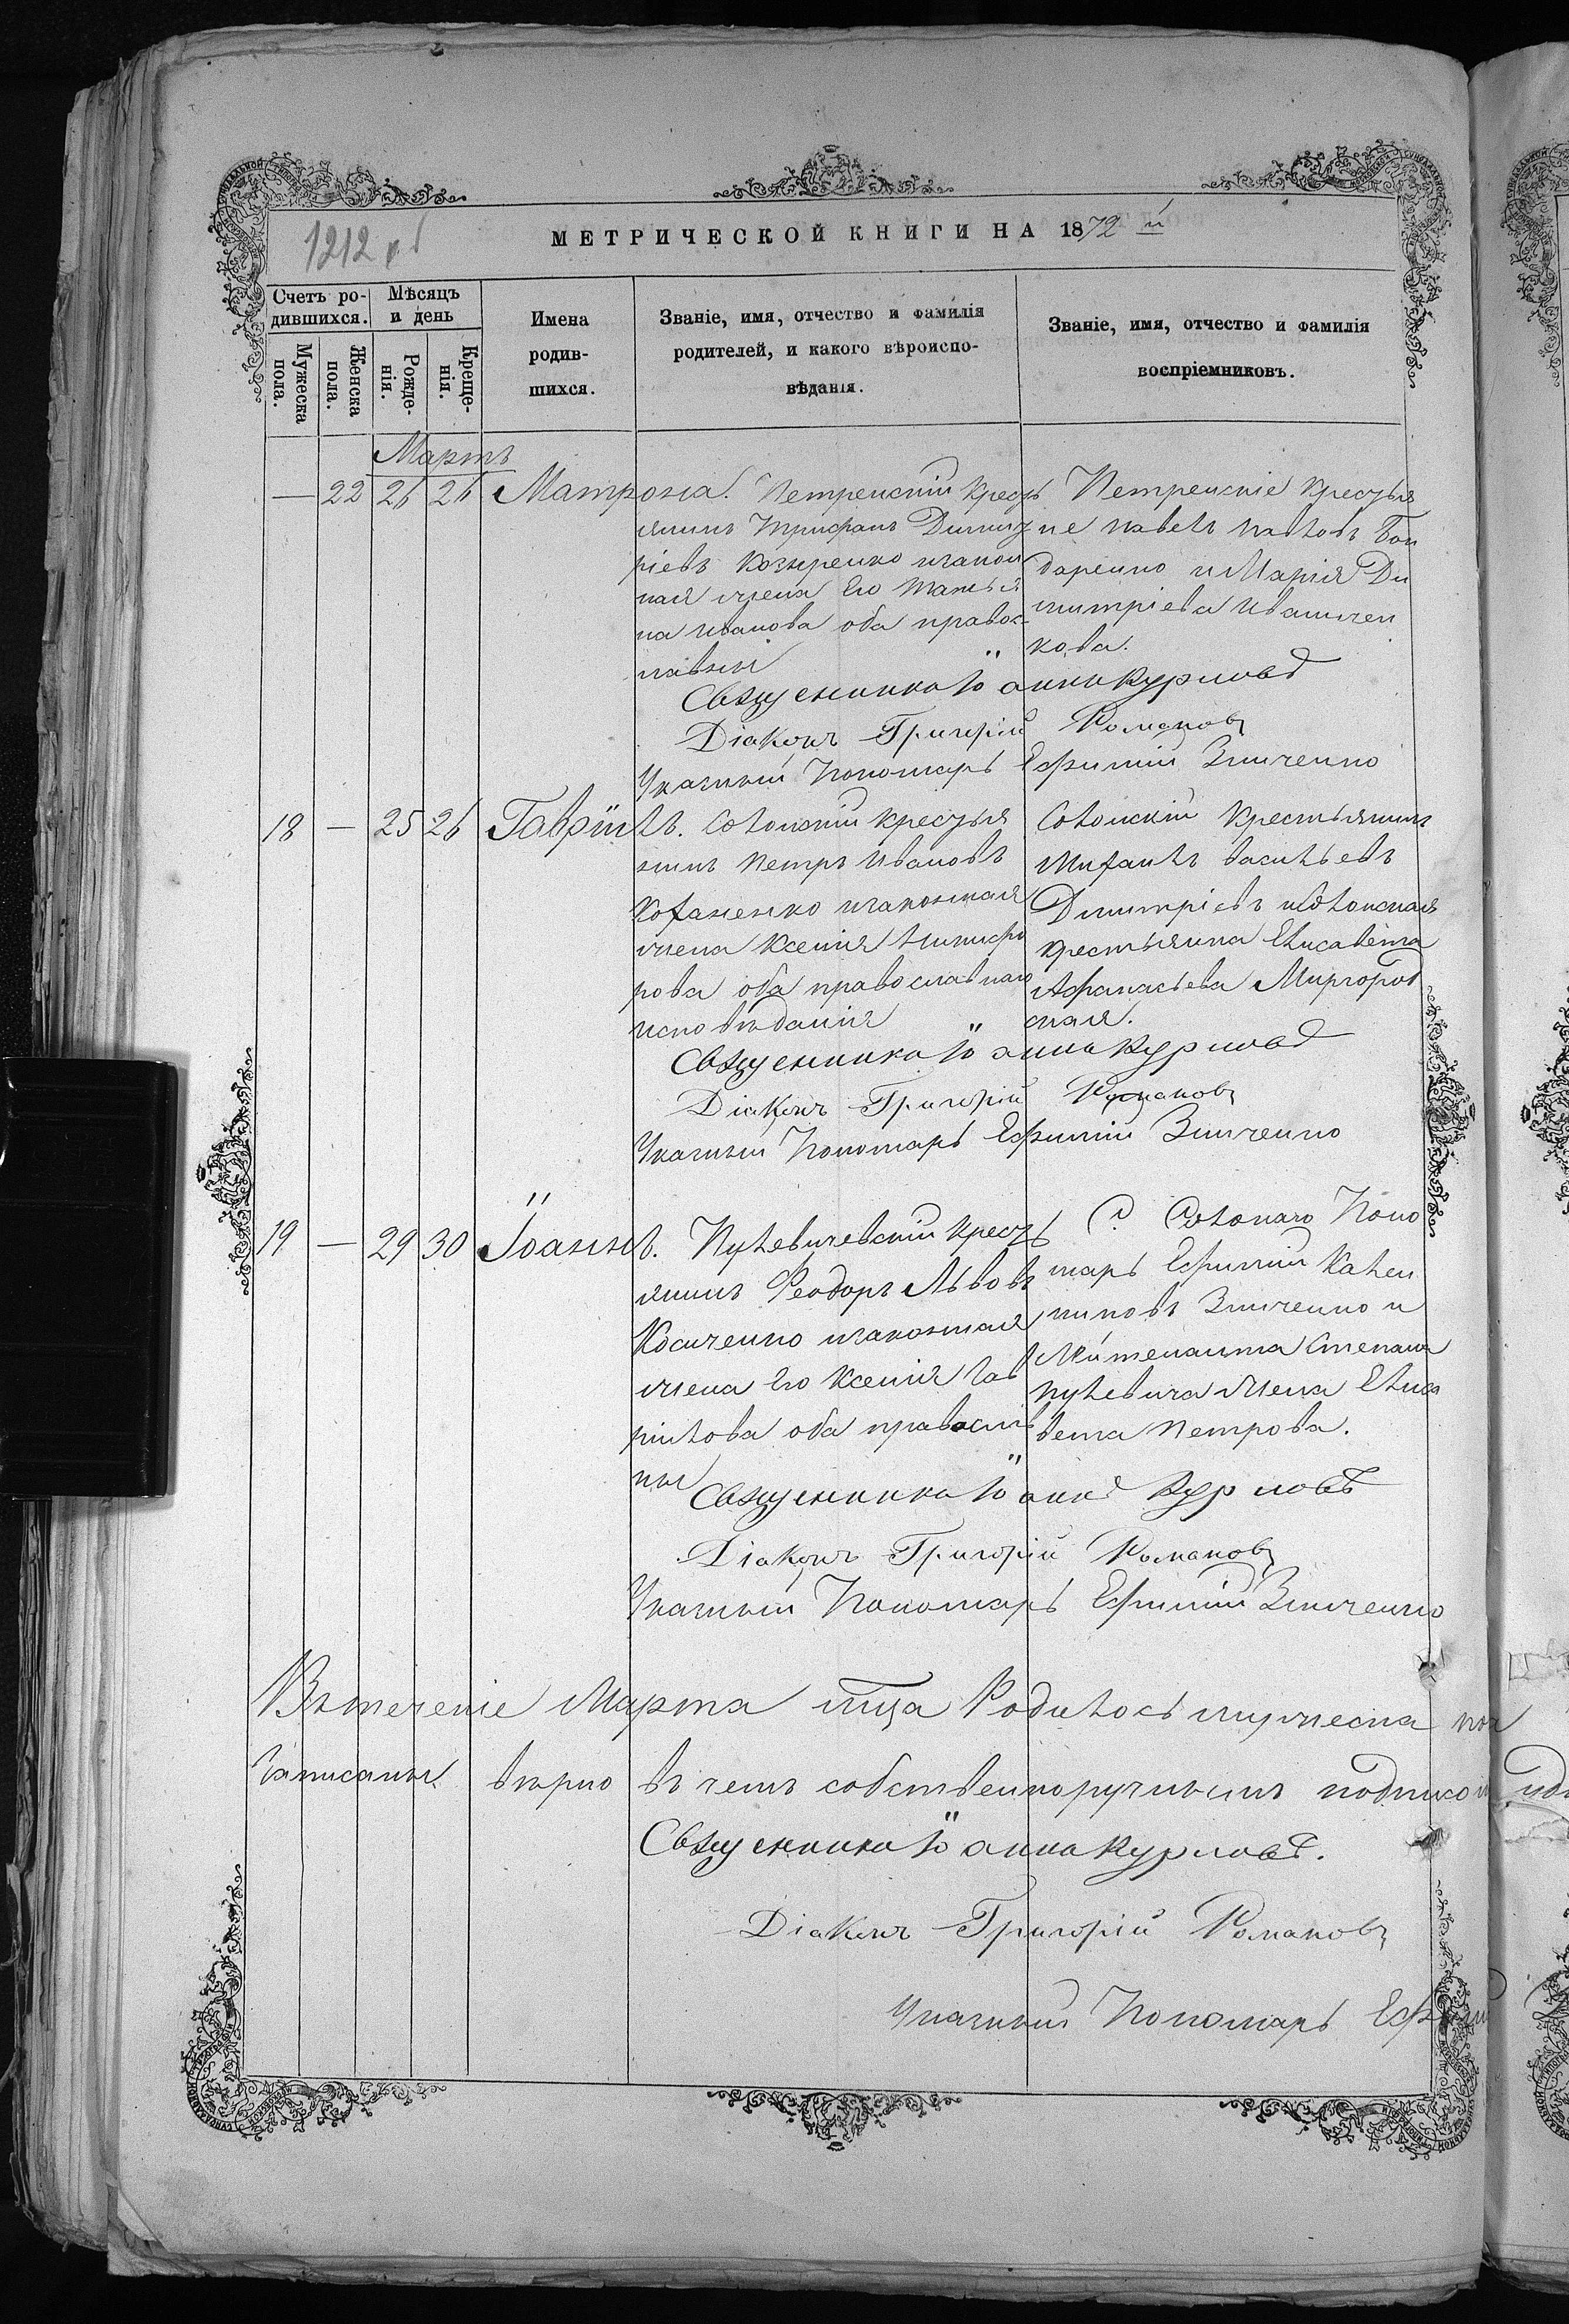 1212 об
МЕТРИЧЕСКОЙ КНИГИ НА 1872 й
Счетъ ро-
дившихся.
Мѣсяцъ
и день
Имена
родив-
шихся.
Званіе, имя, отчество и фамилія
родителей, и какого вѣроиспо-
вѣданія.
Званіе, имя, отчество и фамилія
воспріемниковъ.
Мужеска
пола.
Женска
пола.
Рожде-
нія.
Креще-
нія.
Мартъ
— 22 26 26 Матрона.
Петренскій кресть
янинъ Трифанъ Димит
ріевъ Козыренко изакон
ная жена Его Татья
на Иванова оба правос
лавны
Петренскіе крестья
не Павелъ Павловъ Бон
даренко и Марія Ди
митріева Иваничен
кова.
Священникъ Іоаннъ Курловъ
Діаконъ Григорій Романовъ
Указный Пономарь Ефимій Зинченко
18 — 25 26 Гавріилъ.
Соломскій крестья
нинъ Петръ Ивановъ
Коханенко изаконная
жена Ксенія Никифо
рова оба православнаго
исповѣданія
Соломскій Крестьянинъ
Михаилъ Васильевъ
Димитріевъ иСоломская
крестьянка Елисавета
Афанасьева Миргород
ская.
Священникъ Іоаннъ Курловъ
Діаконъ Григорій Романовъ
Указный Пономарь Ефимій Зинченко
19 — 29 30 Іоаннъ.
Пулевичевскій кресть
янинъ Феодоръ Львовъ
Косиченко изаконная
жена Его Ксенія Гав
рилова оба православ
ны
С. Соломаго Поно
марь Ефимій Кален
никовъ Зинченко и
Лейтенанта Степана
Пулевича жена Елиса
вета Петрова.
Священникъ Іоаннъ Курловъ
Діаконъ Григорій Романовъ
Указный Пономарь Ефимій Зинченко
Втеченіе Марта мца Родилось мужеска пол
записаны вѣрно въ чемъ собственноручнымъ подписом
Священникъ Іоаннъ Курловъ.
Діаконъ Григорій Романовъ
Указный Пономарь Ефимій